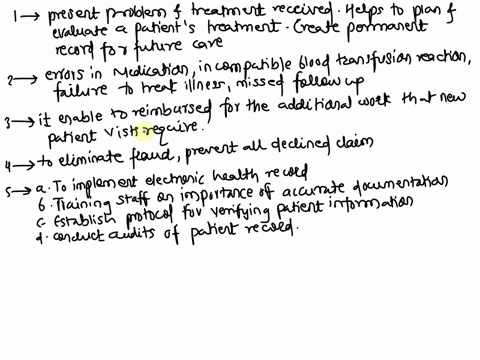 1 → present problem & treatment received. Helps to plan &
evaluate a patient's treatment. Create permanent
record for future care
2 → errors in Medication, incompatible blood transfusion reaction,
failure to treat illness, missed follow up
3 → it enable to reimbursed for the additional work that new
patient visits require.
4 → to eliminate fraud, prevent all declined claim
5 → a. To implement electronic health record
b. Training staff on importance of accurate documentation
c. Establish protocol for verifying patient information
d. conduct audits of patient record.